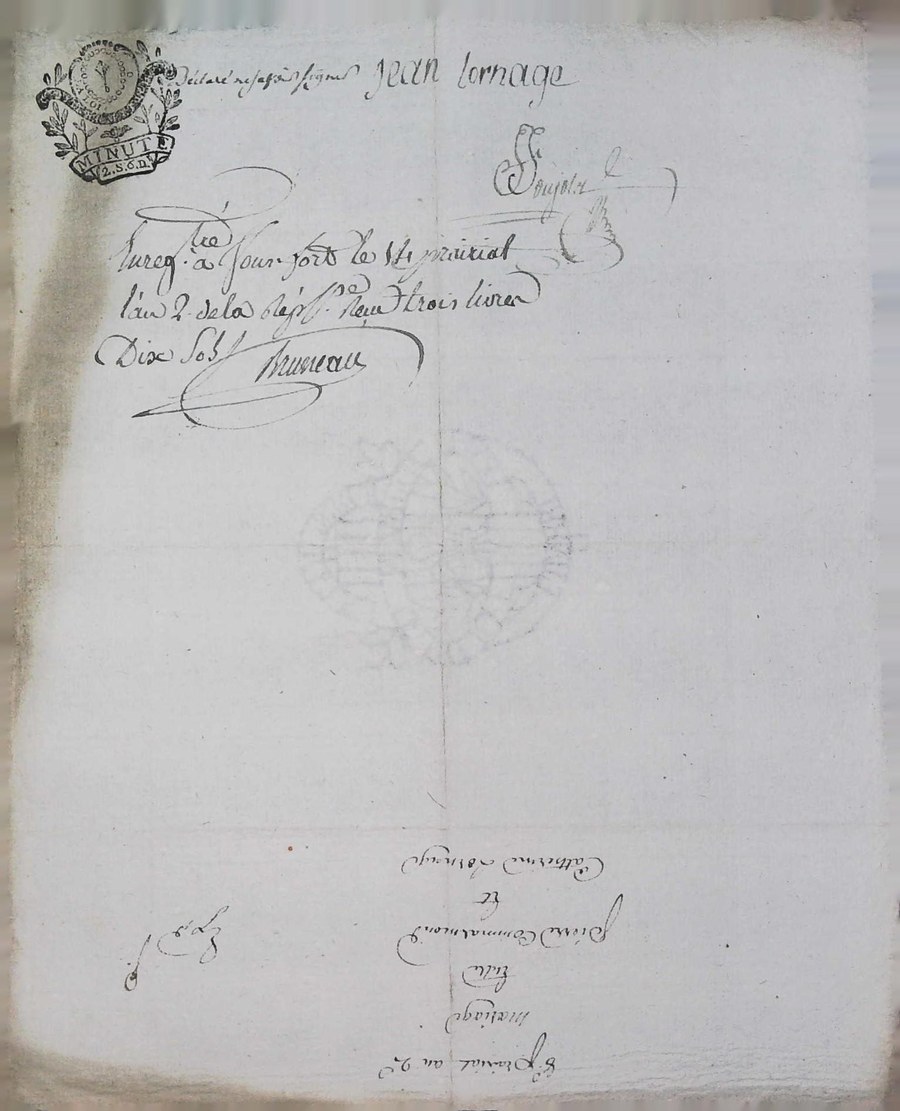 MINUTE
2.S.6.D.
Déclaré ne savoir signer Jean Lornage
Enreg.tré à
le 14 prairial
l'an 2 de la Rép.e Reçu trois livres
Dix Sols
Bruneau
8 prairial an 2e
Mariage
Entre
pierre Commarmond
Et
Catherine Lornage
Exp.é